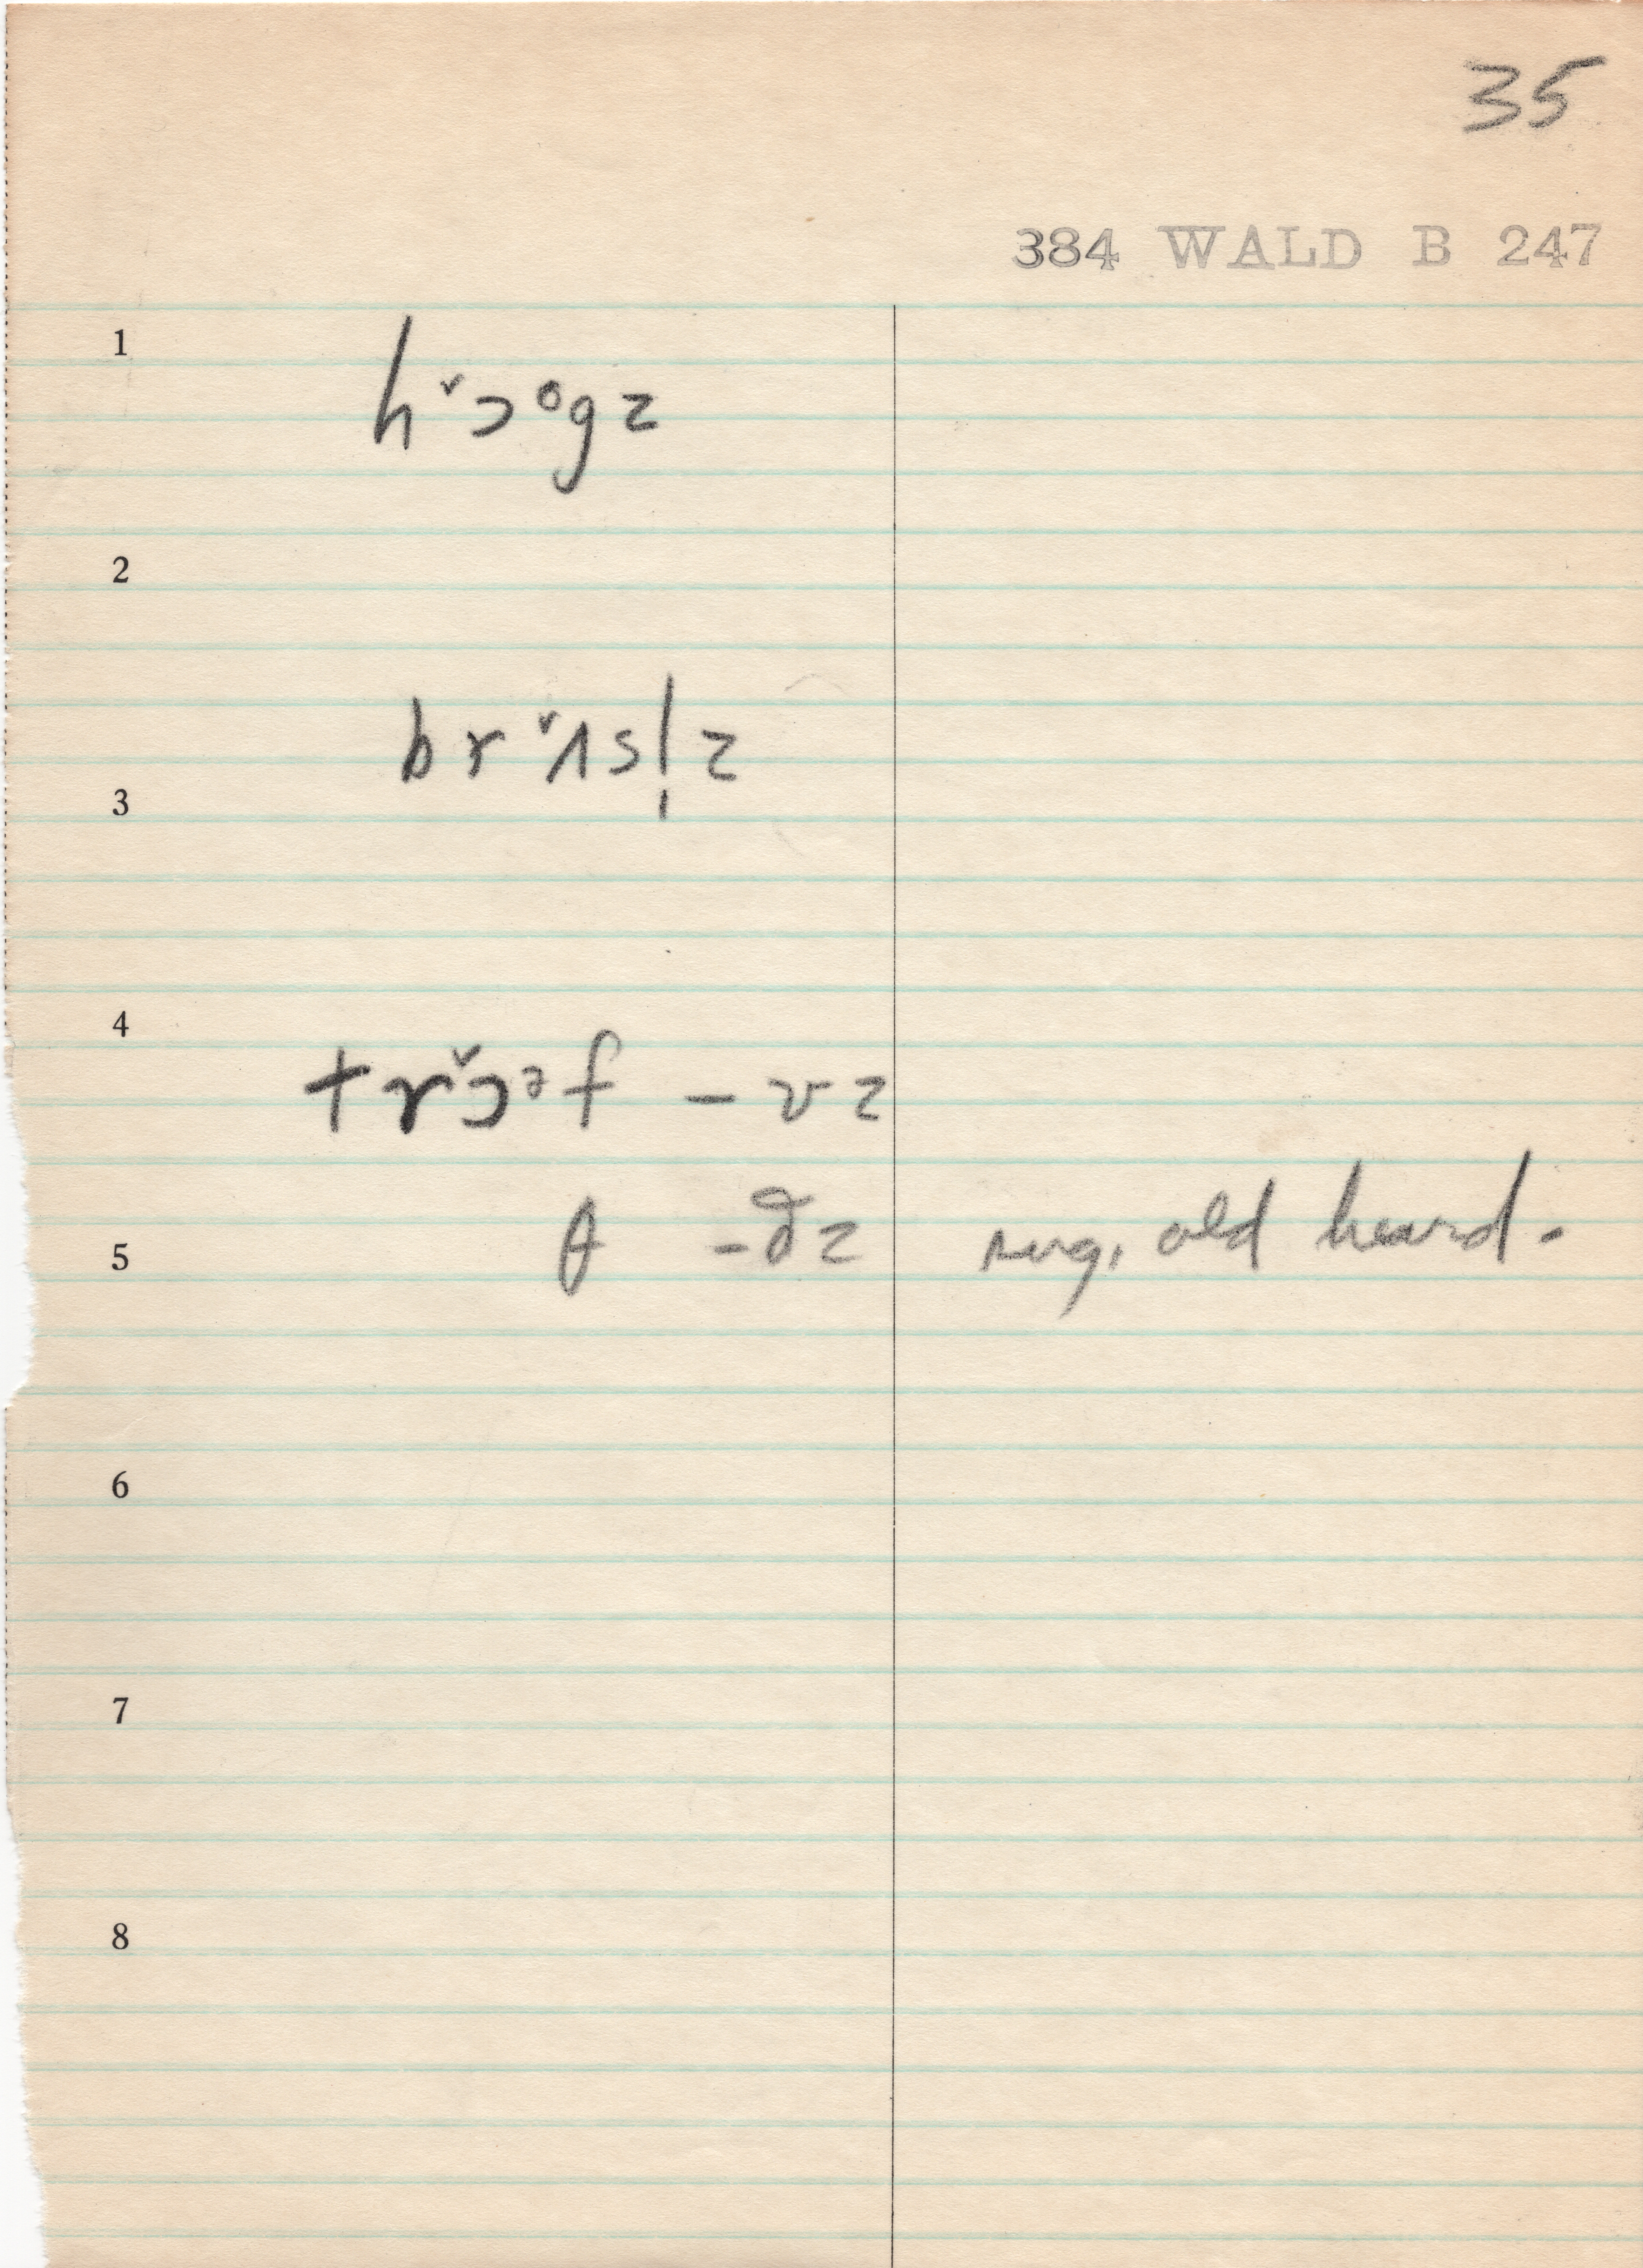 35
384 WALD B 247
1
hˇɔᵒgz
2
brˇʌsl̩z
3
4
trˇɔᵊf – vz
θ – ðz sug. old heard.
5
6
7
8